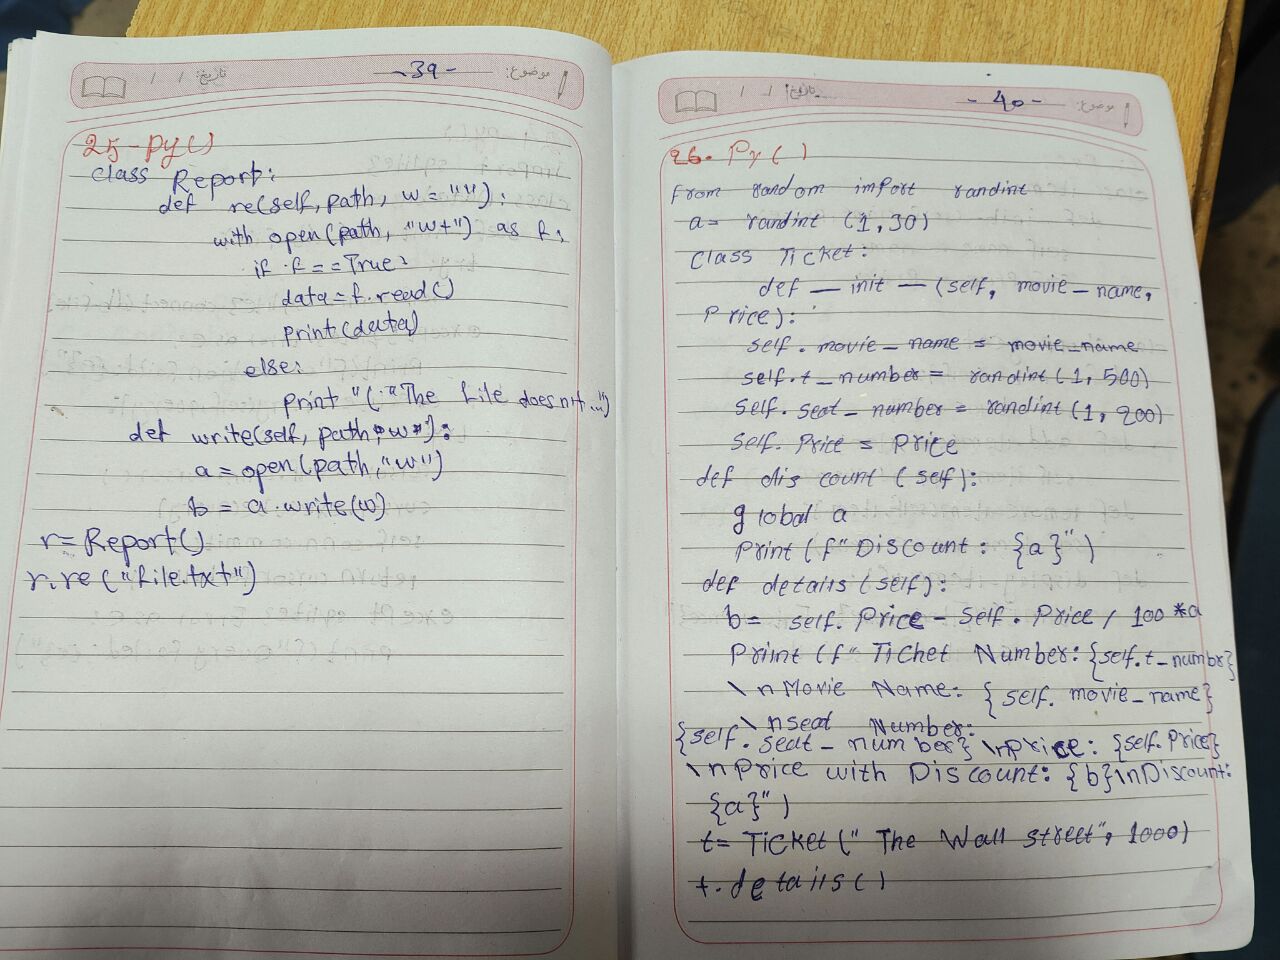 موضوع:
-39-
تاریخ: / /
25-py()
class Report:
def re(self, path, w=""):
with open(path, "w+") as f:
if f==True:
data=f.read()
print(data)
else:
print "("The file does nit..")
def write(self, path, w):
a=open(path,"w")
b = a.write(w)
r=Report()
r.re("file.txt")
موضوع:
-40-
تاریخ: / /
26. Py()
From random import randint
a= randint (1,30)
Class Ticket:
def __init__(self, movie_name,
Price):
self.movie_name = movie_name
self.t_number = randint(1, 500)
Self.seat_number = randint(1, 200)
Self.Price = Price
def dis count (self):
global a
Print(f"Discount: {a}")
def details(self):
b= self.Price - Self.Price / 100 *a
Print (f" Ticket Number: {self.t_numbr}
\nMovie Name: {self.movie_name}
\nseat Number:
{self.seat_number} \nprice: {self.Price}
\nPrice with Discount: {b}\nDiscount:
{a}")
t= Ticket(" The Wall street", 1000)
t.details()